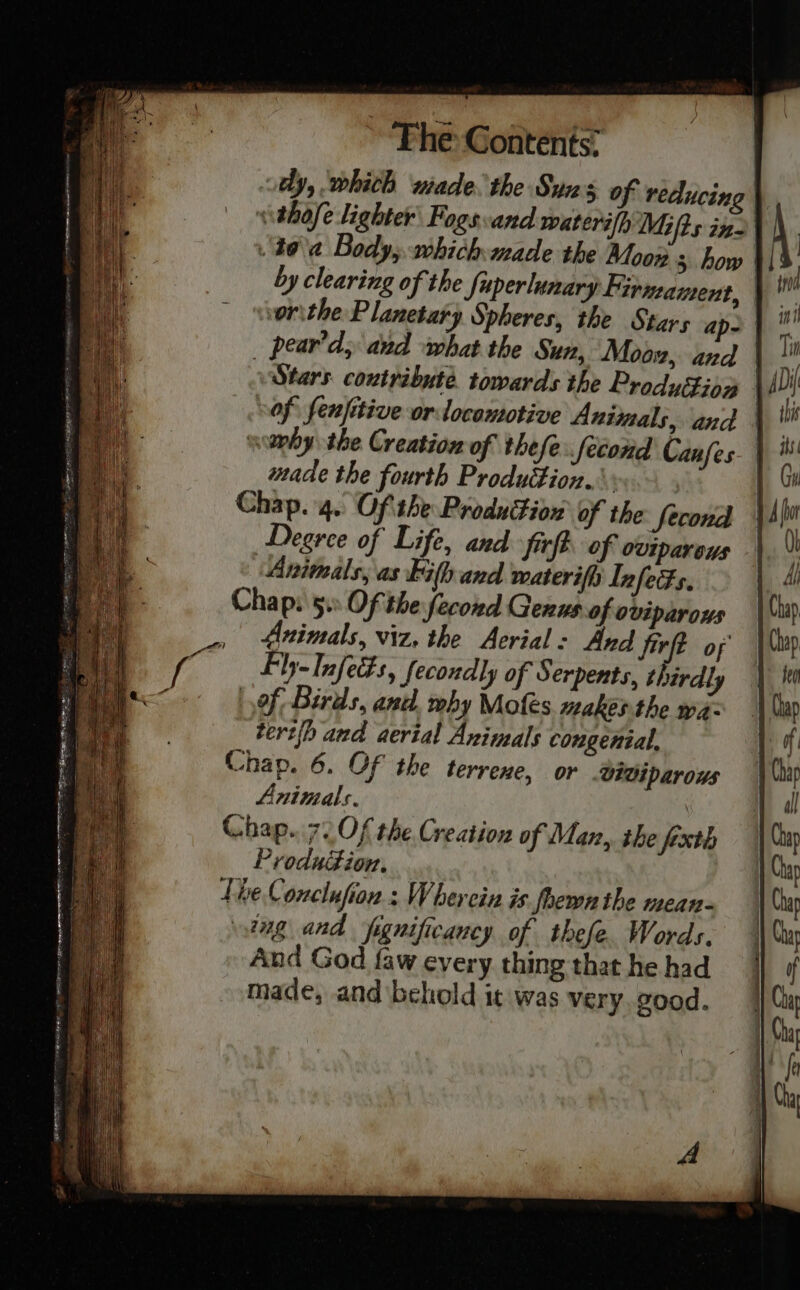 The Contents.
dy, which made the Sun; of reducing
thoſe lighter Fogs and wateriſh Miſts in-
to a Body, which made the Moon; how
by clearing of the ſuperlunary Firmament,
or the Planetary Spheres, the Stars ap-
pear'd, and what the Sun, Moon, and
Stars contribute towards the Production
of ſenſitive or locomotive Animals, and
why the Creation of theſe ſecond Cauſes
made the fourth Production.
Chap. 4. Of the Production of the ſecond
Degree of Life, and firſt of oviparous
Animals, as Fiſh and wateriſh Inſects.
Chap. 5. Of the ſecond Genus of oviparous
Animals, viz. the Aerial: And firſt of
Fly-Inſects, ſecondly of Serpents, thirdly
of Birds, and why Moſes makes the wa-
teriſh and aerial Animals congenial.
Chap. 6. Of the terrene, or viviparous
Animals.
Chap. 7. Of the Creation of Man, the ſixth
Production.
The Concluſion: Wherein is ſhewn the mean-
ing and ſignificancy of theſe Words.
And God ſaw every thing that he had
made, and behold it was very good.
A